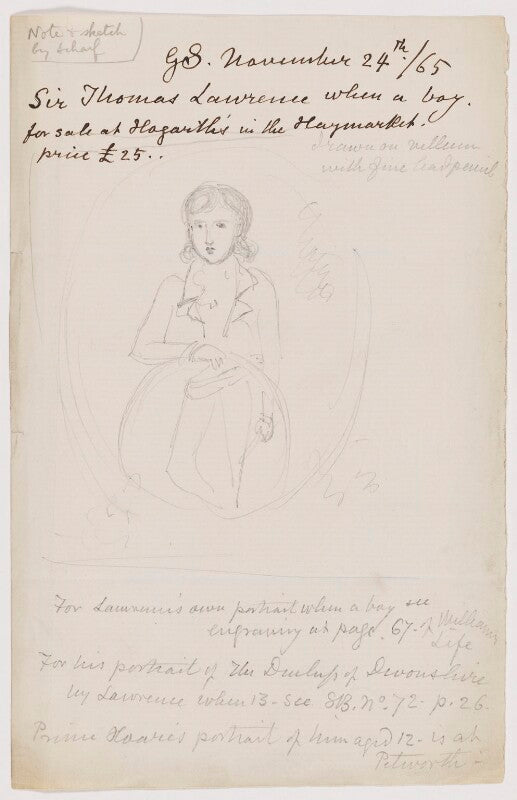 Note & sketch
by Scharf
GS. November 24th/65
Sir Thomas Lawrence when a boy.
for sale at Hogarth's in the Haymarket.
price £25..
drawn on vellum
with fine leadpencil
For Lawrence's own portrait when a boy see
engraving at page. 67- of Williams
Life
For his portrait of The Duchess of Devonshire
by Lawrence when 13- see SB. No. 72- p. 26.
Prince Hoare's portrait of him aged 12- is at
Petworth-